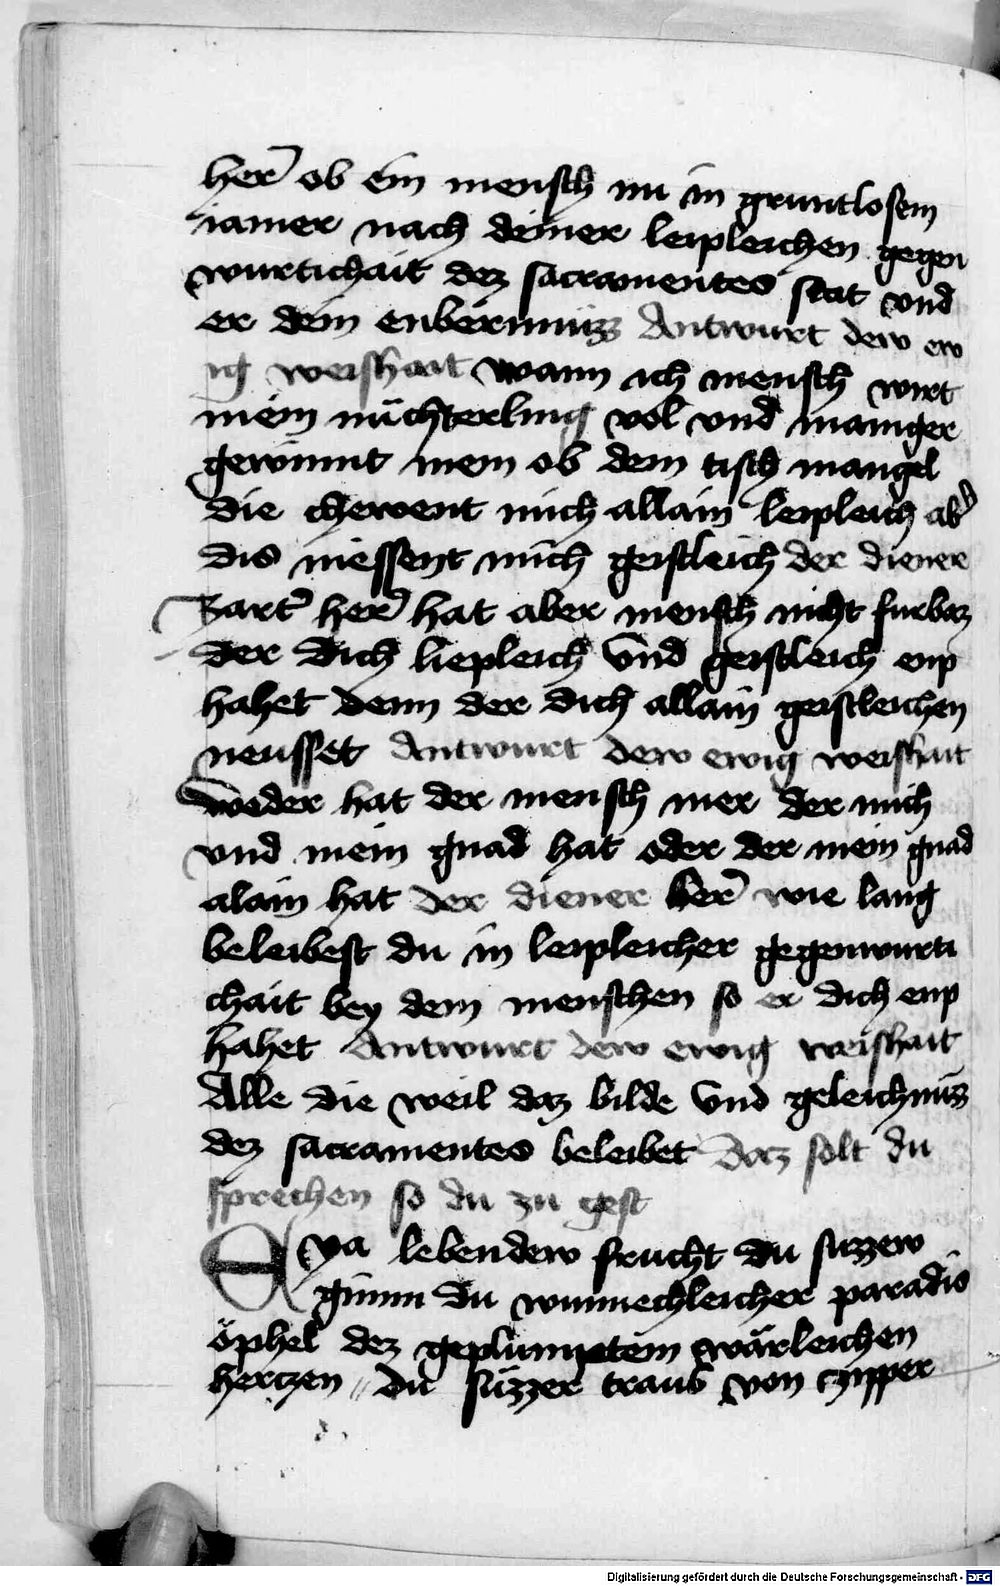 her̄ ob ein mensch nu in gruntlosem
iamer nach deiner leipleichen gegen
wurtichait dez sacramentes stat vnd
er dein enberīmuzz Antwurt dew ew
ig weishait wann ich mensch wirt
mein nüchterling vol vnd maniger
gewinnt mein ob dem tisch mangel
die chewent mich allain leipleich ab̄
dis niessent mich geistleich der diener
Zart̄ her̄ hat aber mensch nicht furbaz
der dich liepleich vnd geistleich enp
hahet denn der dich allain geistleichen
neusset Antwurt dew ewig weishait
Weder hat der mensch mer der mich
vnd mein gnad hat oder der mein gnad
alain hat der diener her̄ wie lang
beleibest du in leipleicher gegenwurti
chait bey dem menschen so er dich enp
hahet Antwurt dew ewig weishait
Alle die weil daz bilde vnd geleichnüs
dez sacramentes beleibet daz solt du
sprechen so du zu gest
Eya lebendew frucht du suzzew
gimm du wunnechleicher paradis
öphel dez geplumeten wärleichen
hertzen du süzzer traub von zypper
Digitalisierung gefördert durch die Deutsche Forschungsgemeinschaft - DFG